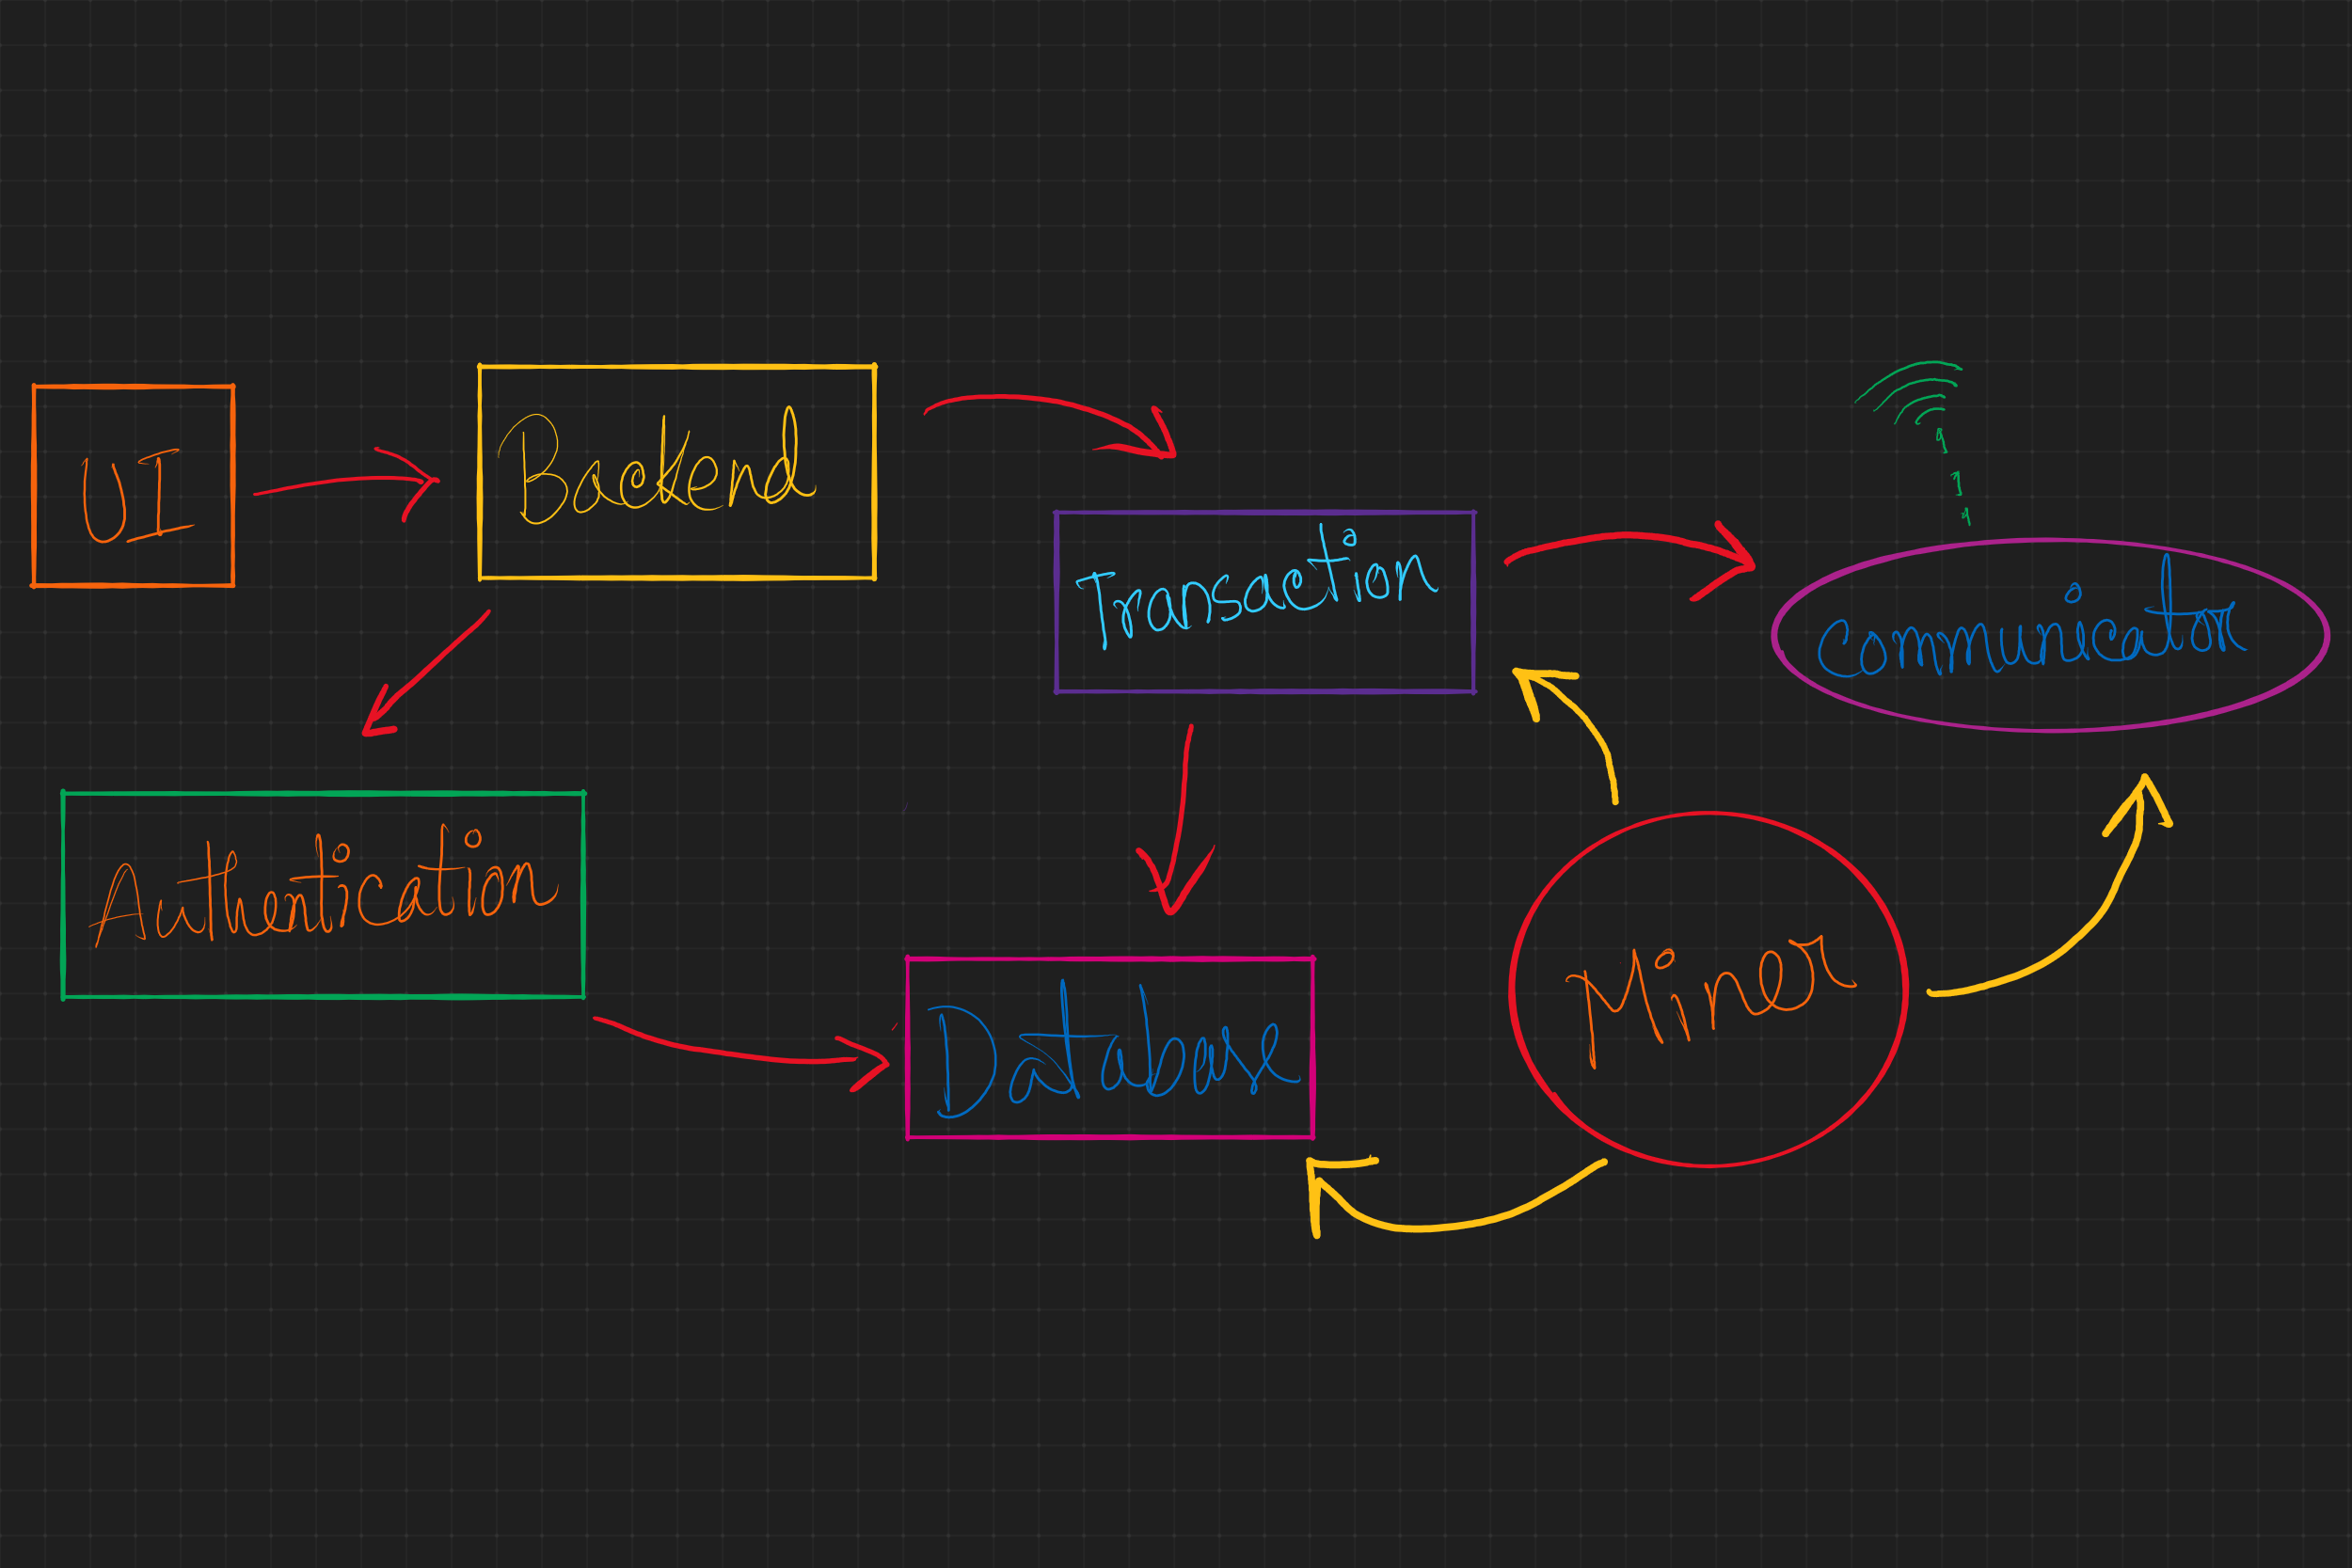 UI
Backend
Transaction
Communicator
Authentication
Database
Miner